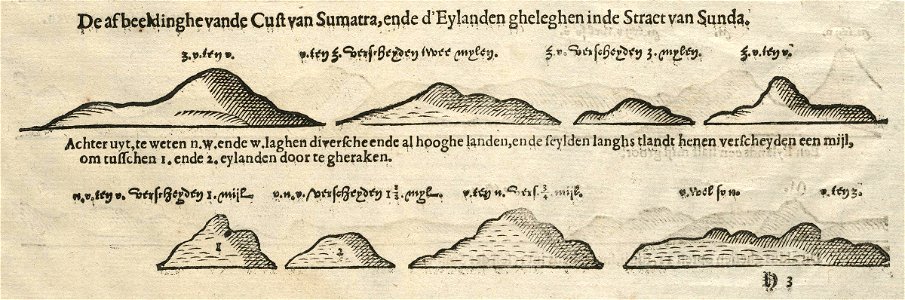 De afbeeldinghe vande Cust van Sumatra, ende d'Eylanden gheleghen inde Stract van Sunda.
z.v. ten v. v. ten z. Verscheyden twee mylen. z.v. Verscheyden 3. mylen. z.v. ten v.
Achter uyt, te weten n.w. ende w. laghen diversche ende al hooghe landen, ende seylden langhs tlandt henen verscheyden een mijl,
om tusschen 1. ende 2. eylanden door te gheraken.
n.v. ten v. Verscheyden 1. mijl. v.n.v. Verscheyden 1 myl. v. ten n. Vers. mijl. v. ten z.
1 2
H 3